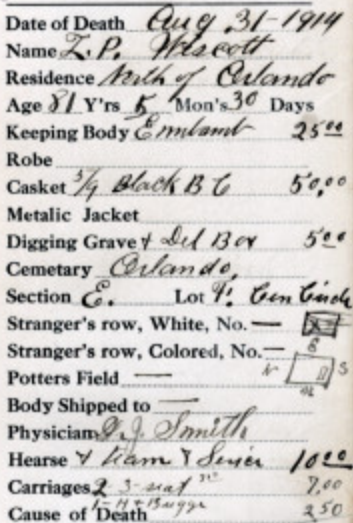 Date of Death Aug. 31-1914
Name Z. P. Wescott
Residence North of Orlando
Age 81 Y'rs 5 Mon's 30 Days
Keeping Body Embamt 25.00
Robe
Casket 5/9 Black B C 50.00
Metalic Jacket
Digging Grave & Del Box 5.00
Cemetary Orlando,
Section E. Lot
Stranger's row, White, No. —
Stranger's row, Colored, No. —
Potters Field —
Body Shipped to —
Physician Smith
Hearse & team & 10.00
Carriages 2 3-seat 7.00
Cause of Death 1-H & Buggy 2.50